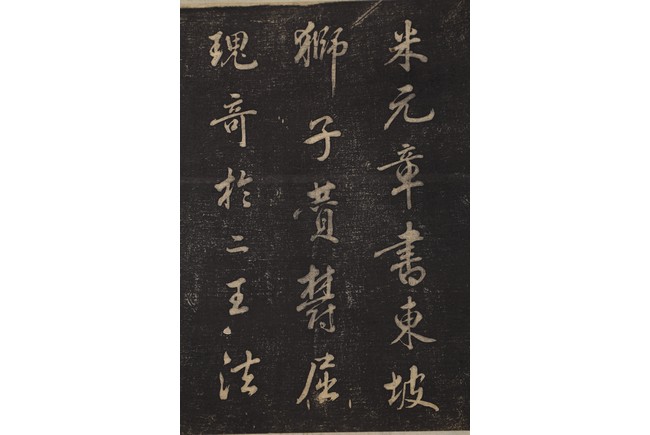 米元章書東坡
獅子賛欝屈
瑰奇於二王法